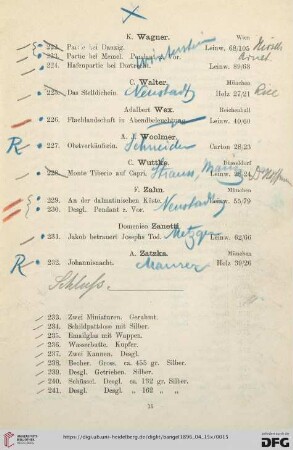 K. Wagner. Wien
222. Partie bei Danzig. Leinw. 68/105
223. Partie bei Memel. Pendant z. Vor.
224. Hafenpartie bei Leinw. 89/68
C. Walter. München
225. Das Stelldichein. Neustadtl Holz 27/21
Adalbert Wex. Reichenhall
226. Flachlandschaft in Abendbeleuchtung. 40/60
R A. J. Woolmer.
227. Obstverkäuferin. Schneider Carton 28/23
C. Wuttke. Düsseldorf
228. Monte Tiberio auf Capri. Strauss, Mainz
F. Zahn. München
229. An der dalmatinischen Küste. Leinw. 55/79
230. Desgl. Pendant z. Vor. Neustadtl
Domenico Zanetti.
231. Jakob betrauert Josephs Tod. Metzger Leinw. 62/60
R A. Zatzka. München
232. Johannisnacht. Maurer Holz 39/26
Schluß.
233. Zwei Miniaturen. Gerahmt.
234. Schildpattdose mit Silber.
235. Emailglas mit Wappen.
236. Wasserbutte. Kupfer.
237. Zwei Kannen. Desgl.
238. Becher. Gross. ca. 455 gr. Silber.
239. Desgl. Getrieben. Silber.
240. Schlfand. Desgl. ca. 132 gr. Silber.
241. Desgl. Desgl. " 162 " "
http://digi.ub.uni-heidelberg.de/diglit/bangel1896_04_15x/0015
UNIVERSITÄTS-BIBLIOTHEK HEIDELBERG
Gefördert durch die DFG